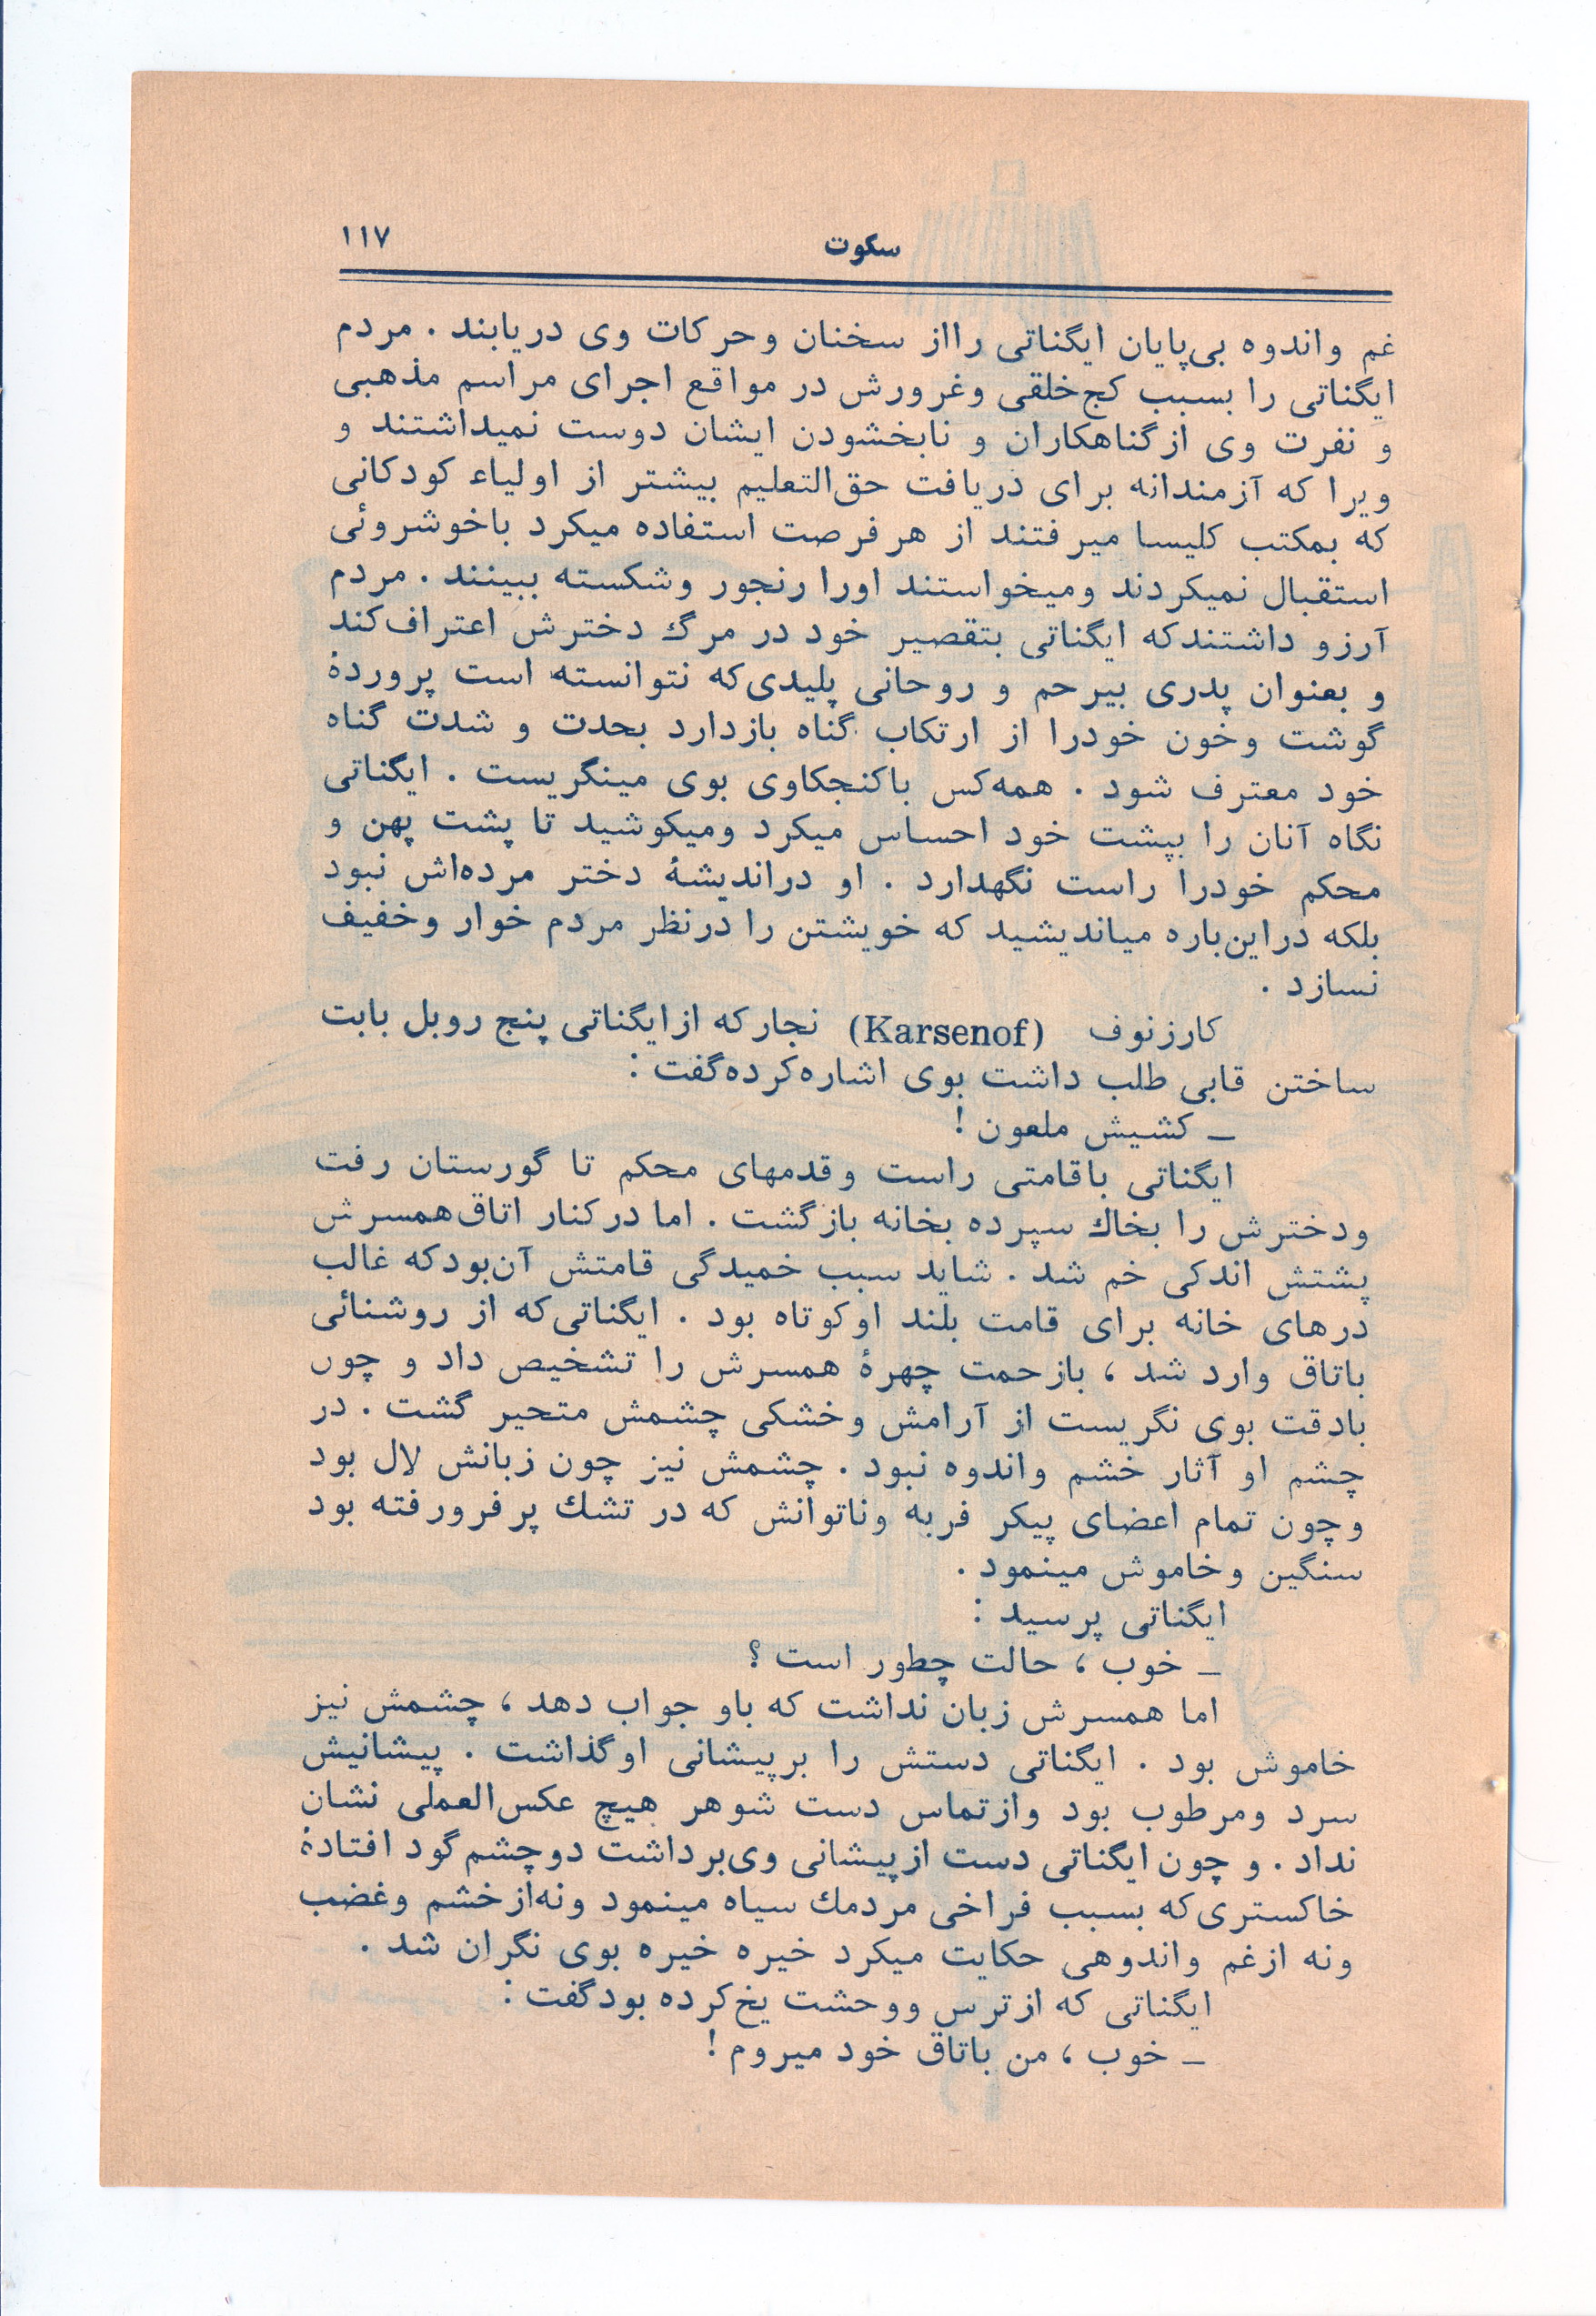 سکوت
۱۱۷
غم واندوه بی‌پایان ایگناتی رااز سخنان وحرکات وی دریابند . مردم
ایگناتی را بسبب کج‌خلقی وغرورش در مواقع اجرای مراسم مذهبی
و نفرت وی ازگناهکاران و نابخشودن ایشان دوست نمیداشتند و
ویرا که آزمندانه برای دریافت حق‌التعلیم بیشتر از اولیاء کودکانی
که بمکتب کلیسا میرفتند از هرفرصت استفاده میکرد باخوشروئی
استقبال نمیکردند ومیخواستند اورا رنجور وشکسته ببینند . مردم
آرزو داشتندکه ایگناتی بتقصیر خود در مرگ دخترش اعتراف‌کند
و بعنوان پدری بیرحم و روحانی پلیدی‌که نتوانسته است پروردهٔ
گوشت وخون خودرا از ارتکاب گناه بازدارد بحدت و شدت گناه
خود معترف شود . همه‌کس باکنجکاوی بوی مینگریست . ایگناتی
نگاه آنان را بپشت خود احساس میکرد ومیکوشید تا پشت پهن و
محکم خودرا راست نگهدارد . او دراندیشهٔ دختر مرده‌اش نبود
بلکه دراین‌باره میاندیشید که خویشتن را درنظر مردم خوار وخفیف
نسازد .
کارزنوف (Karsenof) نجارکه ازایگناتی پنج روبل بابت
ساختن قابی طلب داشت بوی اشاره‌کرده‌گفت :
ـ کشیش ملعون !
ایگناتی باقامتی راست وقدمهای محکم تا گورستان رفت
ودخترش را بخاك سپرده بخانه بازگشت . اما درکنار اتاق‌همسرش
پشتش اندکی خم شد . شاید سبب خمیدگی قامتش آن‌بودکه غالب
درهای خانه برای قامت بلند اوکوتاه بود . ایگناتی‌که از روشنائی
باتاق وارد شد ، بازحمت چهرهٔ همسرش را تشخیص داد و چون
بادقت بوی نگریست از آرامش وخشکی چشمش متحیر گشت . در
چشم او آثار خشم واندوه نبود . چشمش نیز چون زبانش لال بود
وچون تمام اعضای پیکر فربه وناتوانش که در تشك پرفرورفته بود
سنگین وخاموش مینمود .
ایگناتی پرسید :
ـ خوب ، حالت چطور است ؟
اما همسرش زبان نداشت که باو جواب دهد ، چشمش نیز
خاموش بود . ایگناتی دستش را برپیشانی اوگذاشت . پیشانیش
سرد ومرطوب بود وازتماس دست شوهر هیچ عکس‌العملی نشان
نداد . و چون ایگناتی دست ازپیشانی وی‌برداشت دوچشم‌گود افتادهٔ
خاکستری‌که بسبب فراخی مردمك سیاه مینمود ونه‌ازخشم وغضب
ونه ازغم واندوهی حکایت میکرد خیره خیره بوی نگران شد .
ایگناتی که ازترس ووحشت یخ‌کرده بودگفت :
ـ خوب ، من باتاق خود میروم !